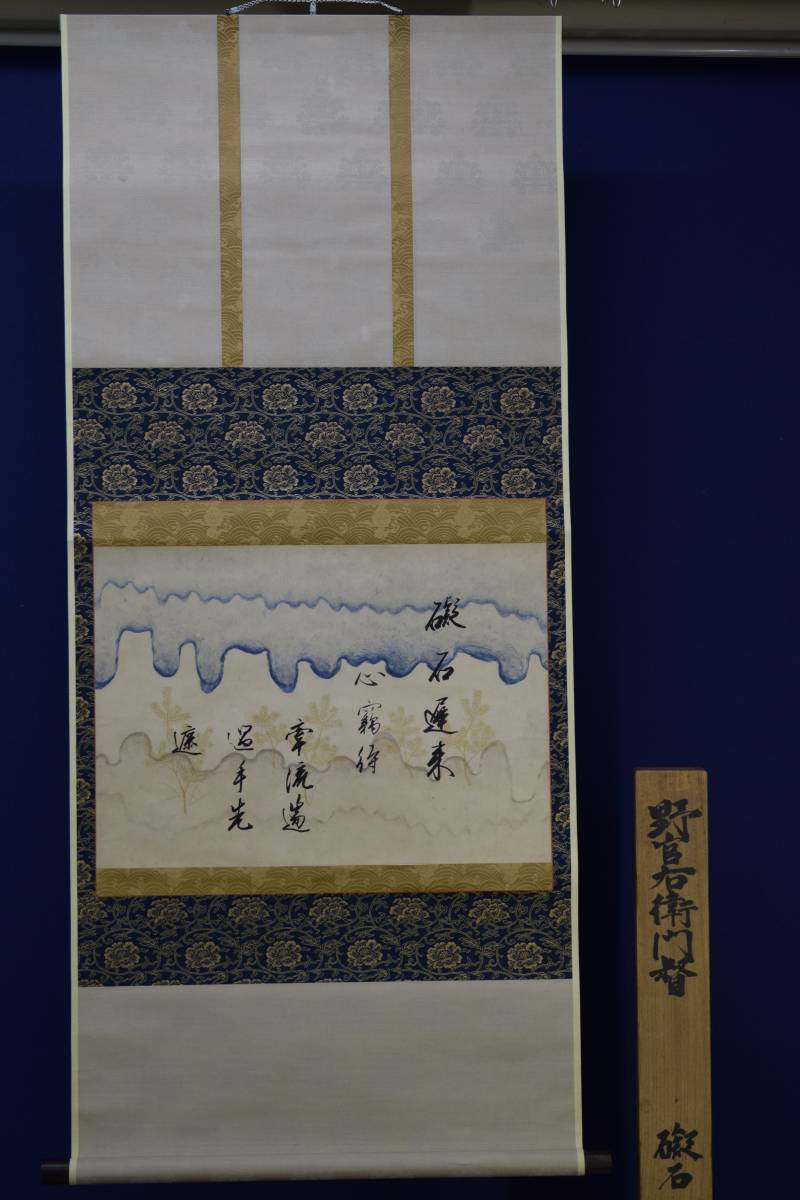 礙石遅来
心竊待
牽流遄
過手先
遮
野宮右衛門督
礙石